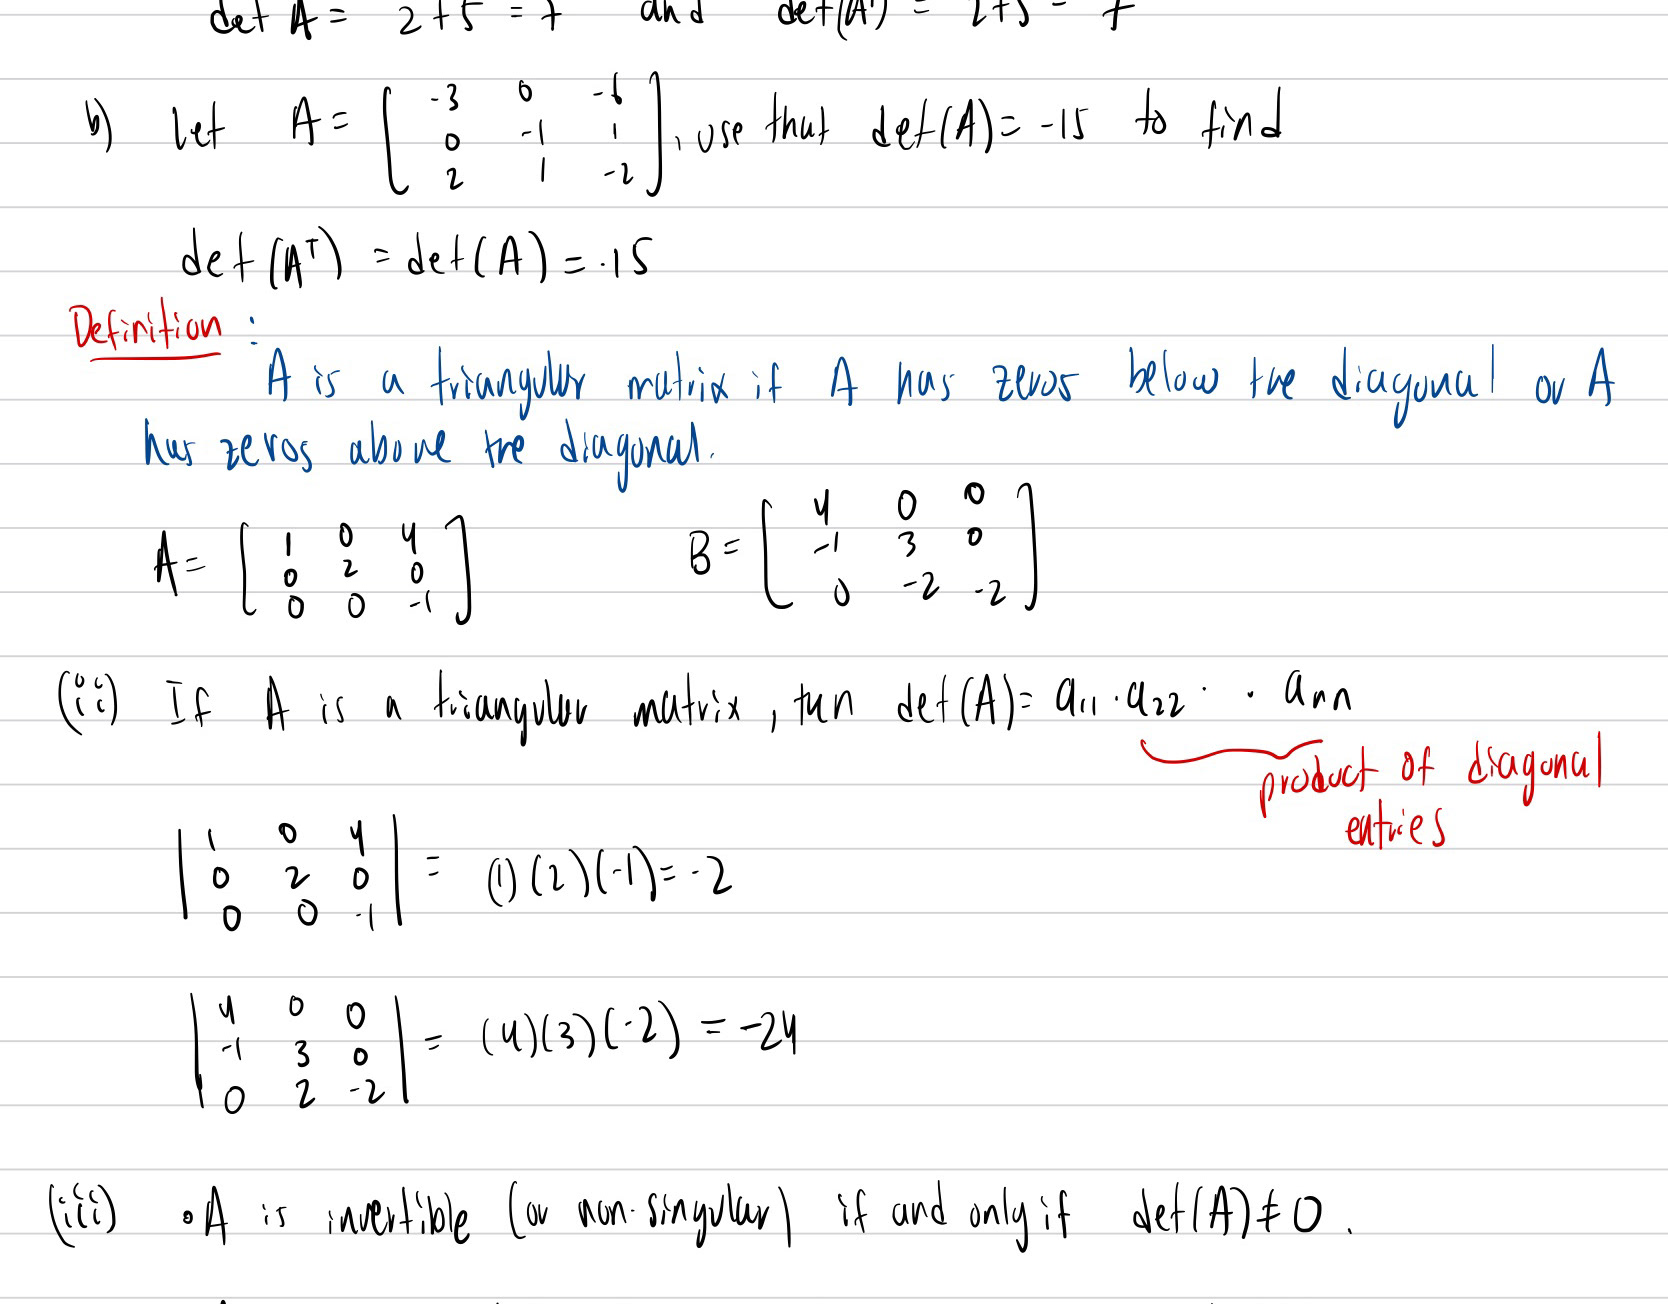 det A = 2+5 = 7 and det(Aᵀ) = 2+5 = 7
b) Let A = [ -3 0 -6
0 -1 1
2 1 -2 ], use that det(A) = -15 to find
det(Aᵀ) = det(A) = -15
Definition :
A is a triangular matrix if A has zeros below the diagonal or A
has zeros above the diagonal.
A = [ 1 0 4 B = [ 4 0 0
0 2 0 -1 3 0
0 0 -1 ] 0 -2 -2 ]
(ii) If A is a triangular matrix, then det(A) = a11 · a22 · · ann
product of diagonal
entries
| 1 0 4 |
| 0 2 0 | = (1)(2)(-1) = -2
| 0 0 -1 |
| 4 0 0 |
| -1 3 0 | = (4)(3)(-2) = -24
| 0 2 -2 |
(iii) • A is invertible (or non-singular) if and only if det(A) ≠ 0.